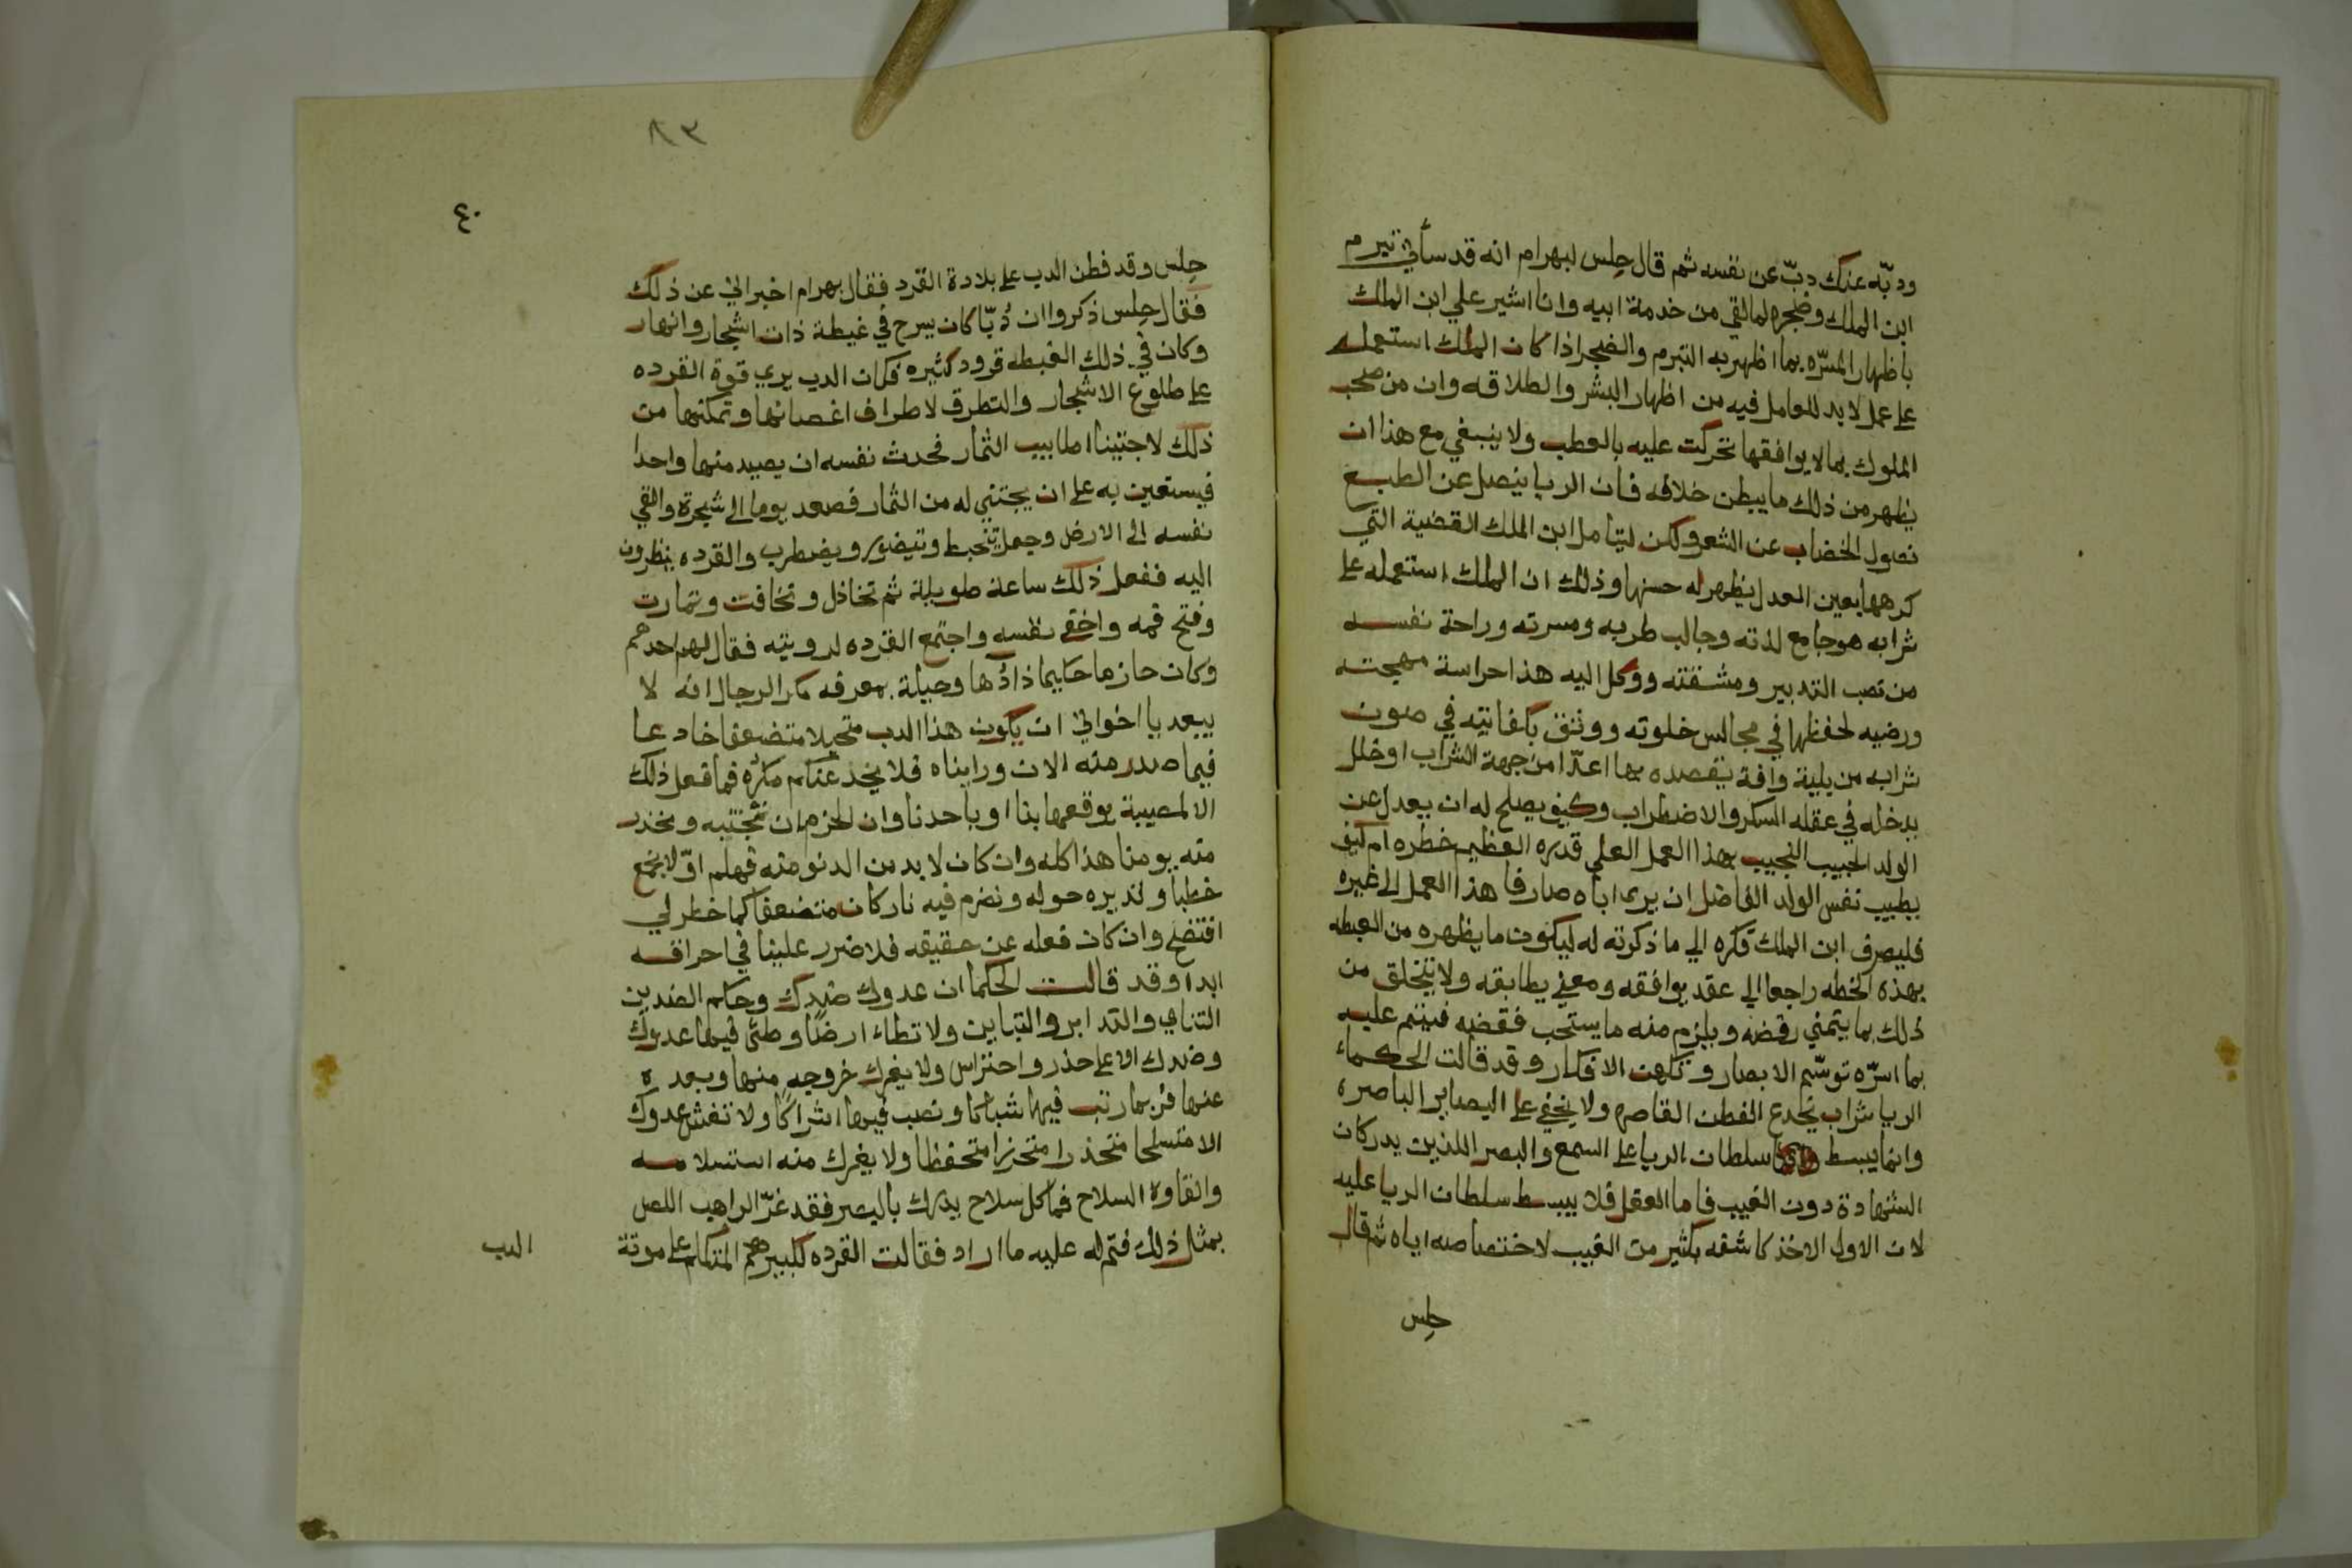 ودبّه عنك دبّ عن نفسه ثم قال حلس لبهرام انه قد سأني تبرم
ابن الملك وضجره لما لقي من خدمة ابيه وانا اشير علي ابن الملك
باظهار المسرّه بما اظهر به التبرم والضجر اذا كان الملك استعمله
على عمل لا بد للعامل فيه من اظهار البشر والطلاقه وان من صحب
الملوك بما لا يوافقها تحركت عليه بالعطب ولا ينبغي مع هذا ان
يظهر من ذلك ما يبطن خلافه فان الريا ينصل عن الطبع
نصول الخضاب عن الشعر ولكن ليتامل ابن الملك القضية التي
كرهها بعين العدل يظهر له حسنها وذلك ان الملك استعمله على
شرابه هو جامع لذته وجالب طربه ومسرته وراحة نفسه
من تعب التدبير ومشقته ووكل اليه هذا حراسة مهجته
ورضيه لحفظها في مجالس خلوته ووثق بكفايته في صون
شرابه من بلية وافة يقصده بها اعدّا من جهة الشراب او خلل
يدخله في عقله السكر والاضطراب وكيف يصلح له ان يعدل عن
الولد الحبيب النجيب بهذا العمل العلي قدره العظيم خطره ام كيف
يطيب نفس الولد الفاضل ان يرى اباه صارفا هذا العمل الى غيره
فليصرف ابن الملك فكره الي ما ذكرته له ليكون ما يظهره من الغبطه
بهذه الخطه راجعا الي عقد يوافقه ومعني يطابقه ولا يتخلق من
ذلك بما يتمني رفضه ويلزم منه ما يستحب فقضه فينم عليه
بما اسرّه توسّم الابصار وتكهن الافكار وقد قالت الحكماء
الريا شراب يخدع الفطن القاصره ولا يخفي على البصاير الباصره
وانما يبسط سلطان الريا على السمع والبصر اللذين يدركان
الشهادة دون الغيب فاما العقل فلا يبسط سلطان الريا عليه
لان الاول الاخذ كاشفه بكثير من الغيب لاختصاصه اياه ثم قال
حلس
٨٣
٤٠
حلس وقد فطن الدب على بلادة القرد فقال بهرام اخبراني عن ذلك
فقال حلس ذكروا ان دُبّا كان يسرح في غيطة ذات اشجار وانهار
وكان في ذلك الغيطه قرود كثيره فكان الدب يري قوة القرده
على طلوع الاشجار والتطرق لاطراف اغصانها وتمكنها من
ذلك لاجتينا اطابيب الثمار فحدث نفسه ان يصيد منها واحدا
فيستعين به على ان يجتني له من الثمار فصعد يوما الى شجرة والقي
نفسه الى الارض وجعل يتخبط ويتضور ويضطرب والقرده ينظرون
اليه ففعل ذلك ساعة طويلة ثم تخاذل وتخافت وتمارت
وفتح فمه واخفى نفسه واجتمع القرده لرويته فقال لهم احدهم
وكان حازما حكيما ذا دُها وحيلة بمعرفه مكر الرجال انه لا
يبعد يا اخواني ان يكون هذا الدب متحيلا متضعفا خادعا
فيما صدر منه الان ورايناه فلا يخدعنكم مكره فما فعل ذلك
الا لمصيبة يوقعها بنا او باحدنا وان الحزم ان نجتنبه ونحذر
منه يومنا هذا كله وان كان لا بد من الدنو منه فهلم اوّلا نجمع
حطبا ونديره حوله ونضرم فيه نار كان متضعفا كما خطر لي
افتضح وان كان فعله عن حقيقه فلا ضرر علينا في احراقه
ابدا وقد قالت الحكما ان عدوك ضدك وحكم الضدين
التنافي والتدابر والتباين ولا تطاء ارضًا وطئ فيها عدوك
وضدك الا على حذر واحتراس ولا يغرك خروجه منها وبعده
عنها فربما رتب فيها شباكا ونصب فيها اشراكًا ولا تغش عدوك
الا متسلحا متحذرا متحرزا متحفظا ولا يغرك منه استسلامه
والقاوه السلاح فما كل سلاح يدرك بالبصر فقد غرّ الراهب اللص
بمثل ذلك فتم له عليه ما اراد فقالت القرده لكبيرهم المتكلم على موتة
الدب